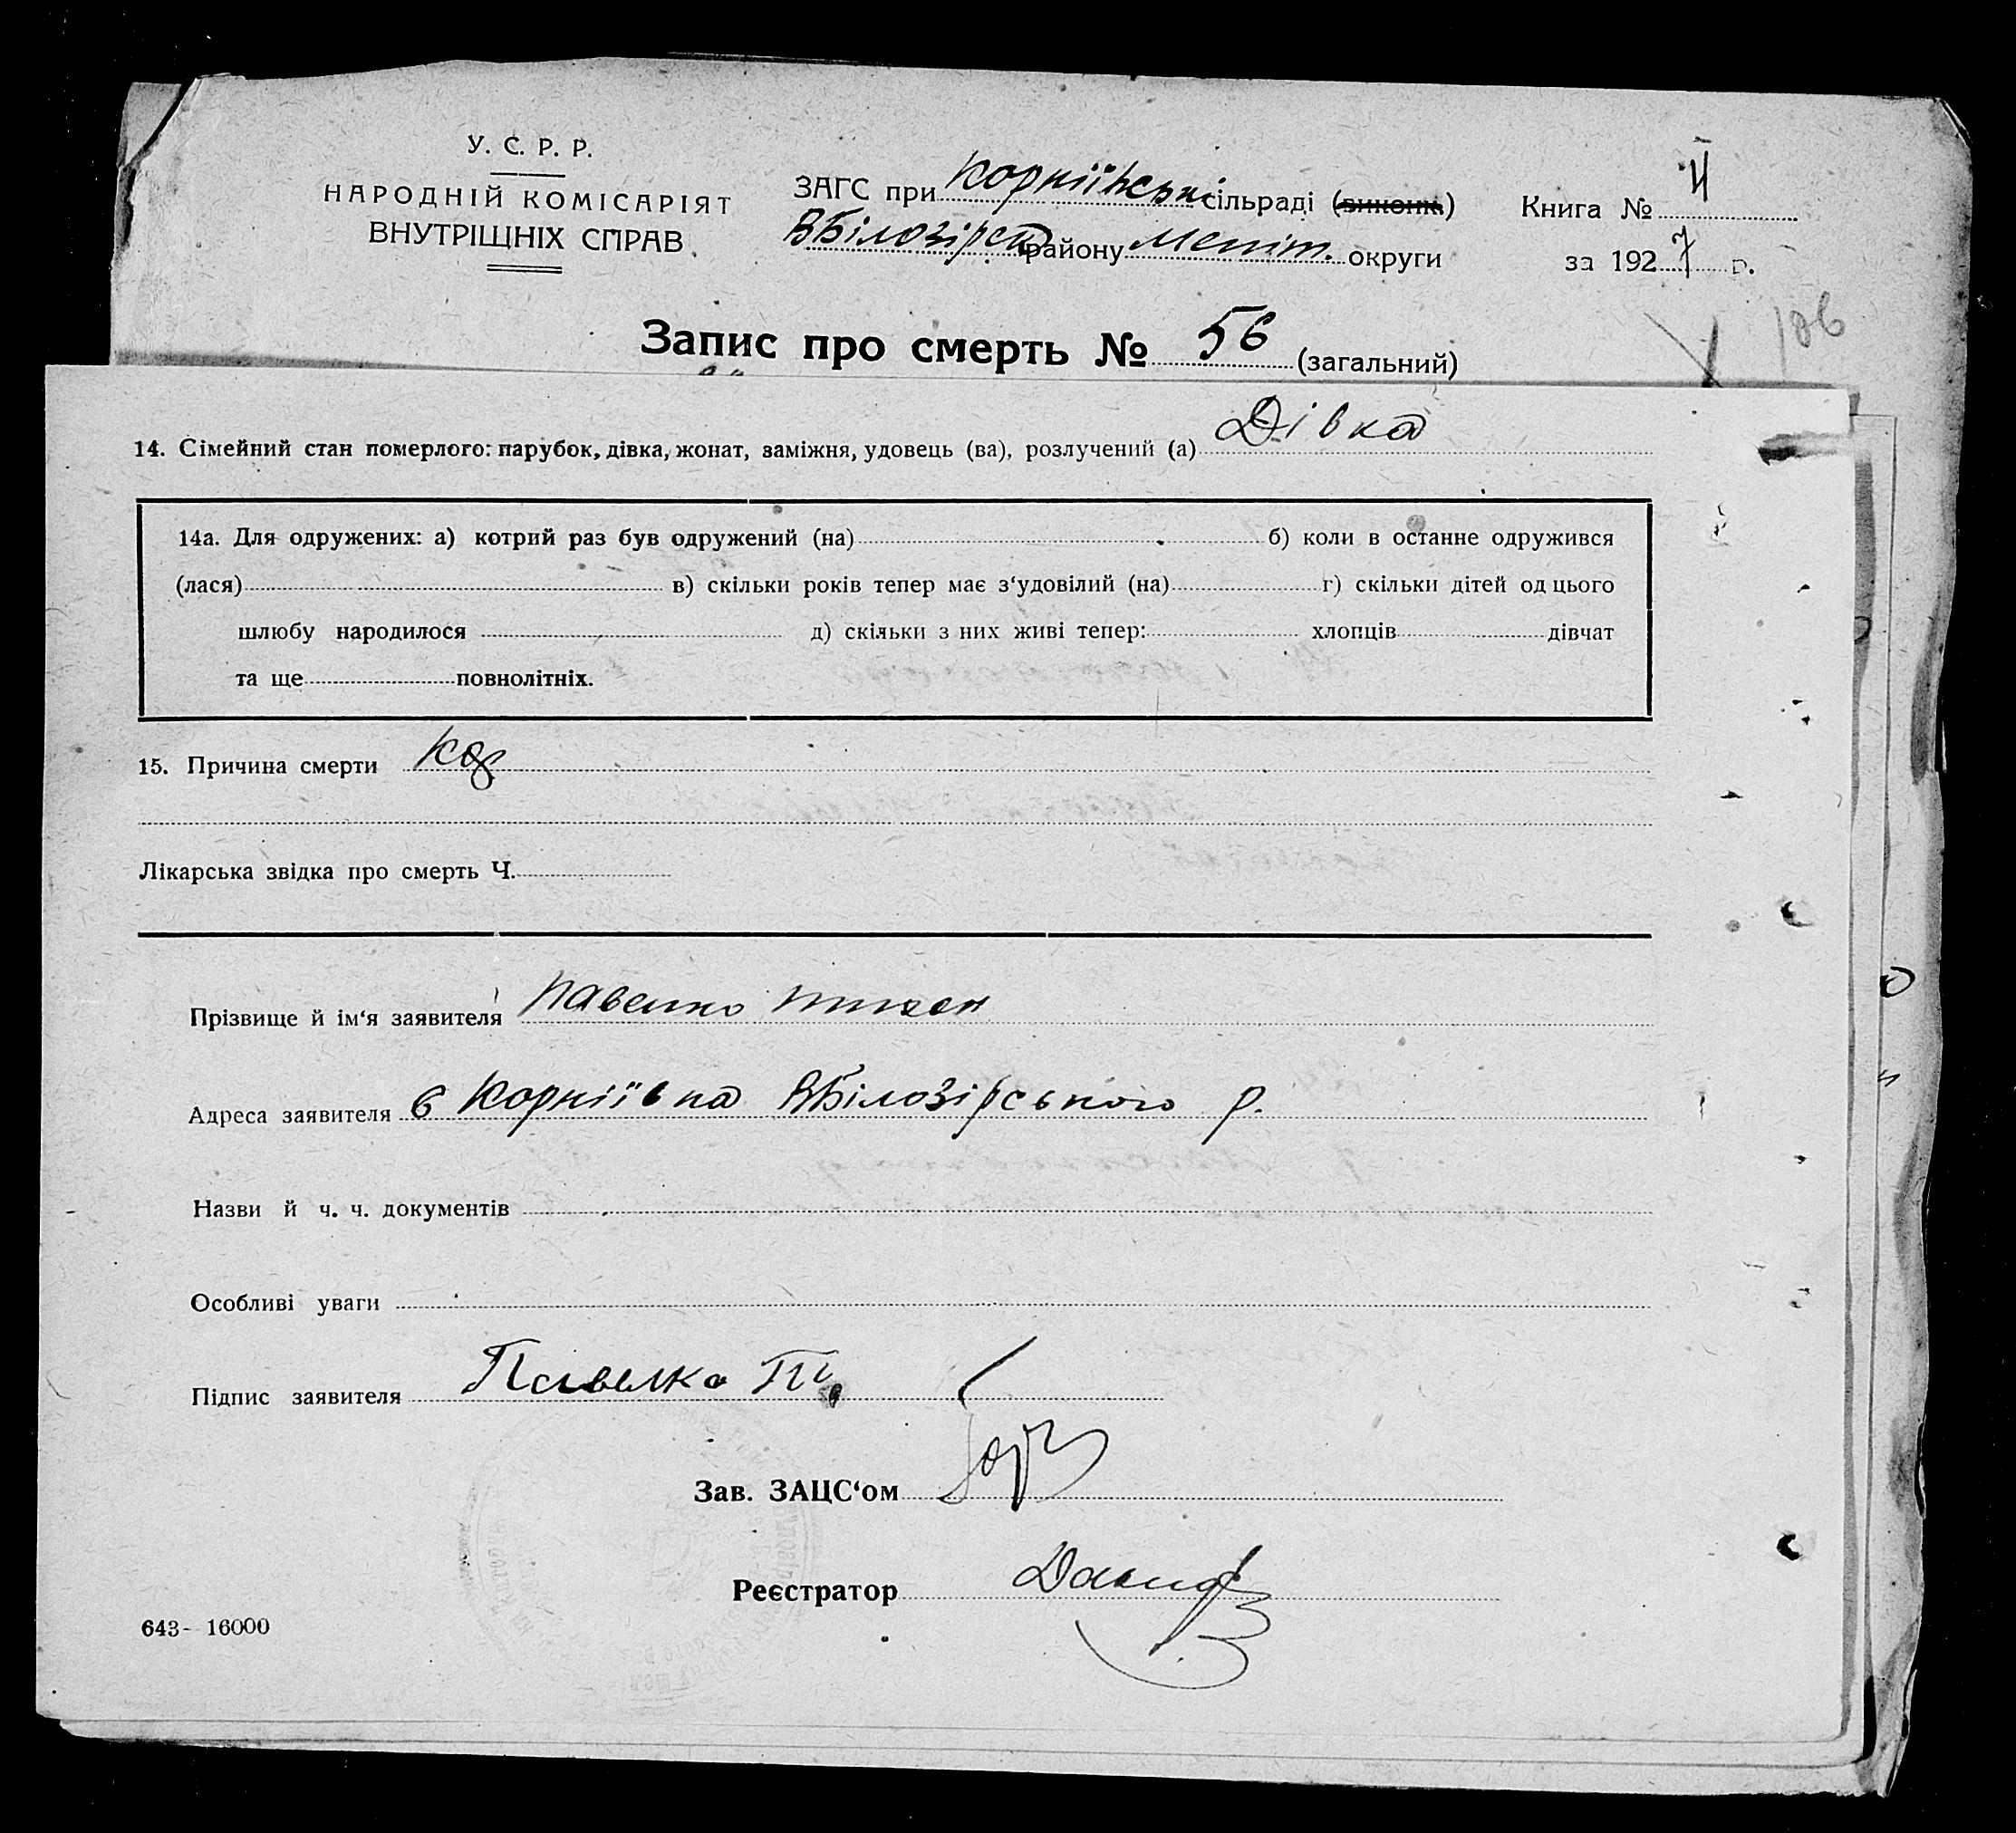 У. С. Р. Р.
НАРОДНІЙ КОМІСАРІЯТ
ВНУТРІШНІХ СПРАВ
ЗАГС при Корніївській сільраді (виконк.)
ВБілозірск району Меліт. округи
Книга № II
за 1927 р.
106
Запис про смерть № 56 (загальний)
14. Сімейний стан померлого: парубок, дівка, жонат, заміжня, удовець (ва), розлучений (а) Дівка
14а. Для одружених: а) котрий раз був одружений (на) б) коли в останне одружився
(лася) в) скільки років тепер має з‘удовілий (на) г) скільки дітей од цього
шлюбу народилося д) скільки з них живі тепер: хлопців дівчат
та ще повнолітніх.
15. Причина смерти Кор
Лікарська звідка про смерть Ч.
Прізвище й ім‘я заявителя Павелко
Адреса заявителя с Корніївка ВБілозірського р.
Назви й ч. ч. документів
Особливі уваги
Підпис заявителя Павелко
Зав. ЗАЦС‘ом
Реєстратор
643- 16000